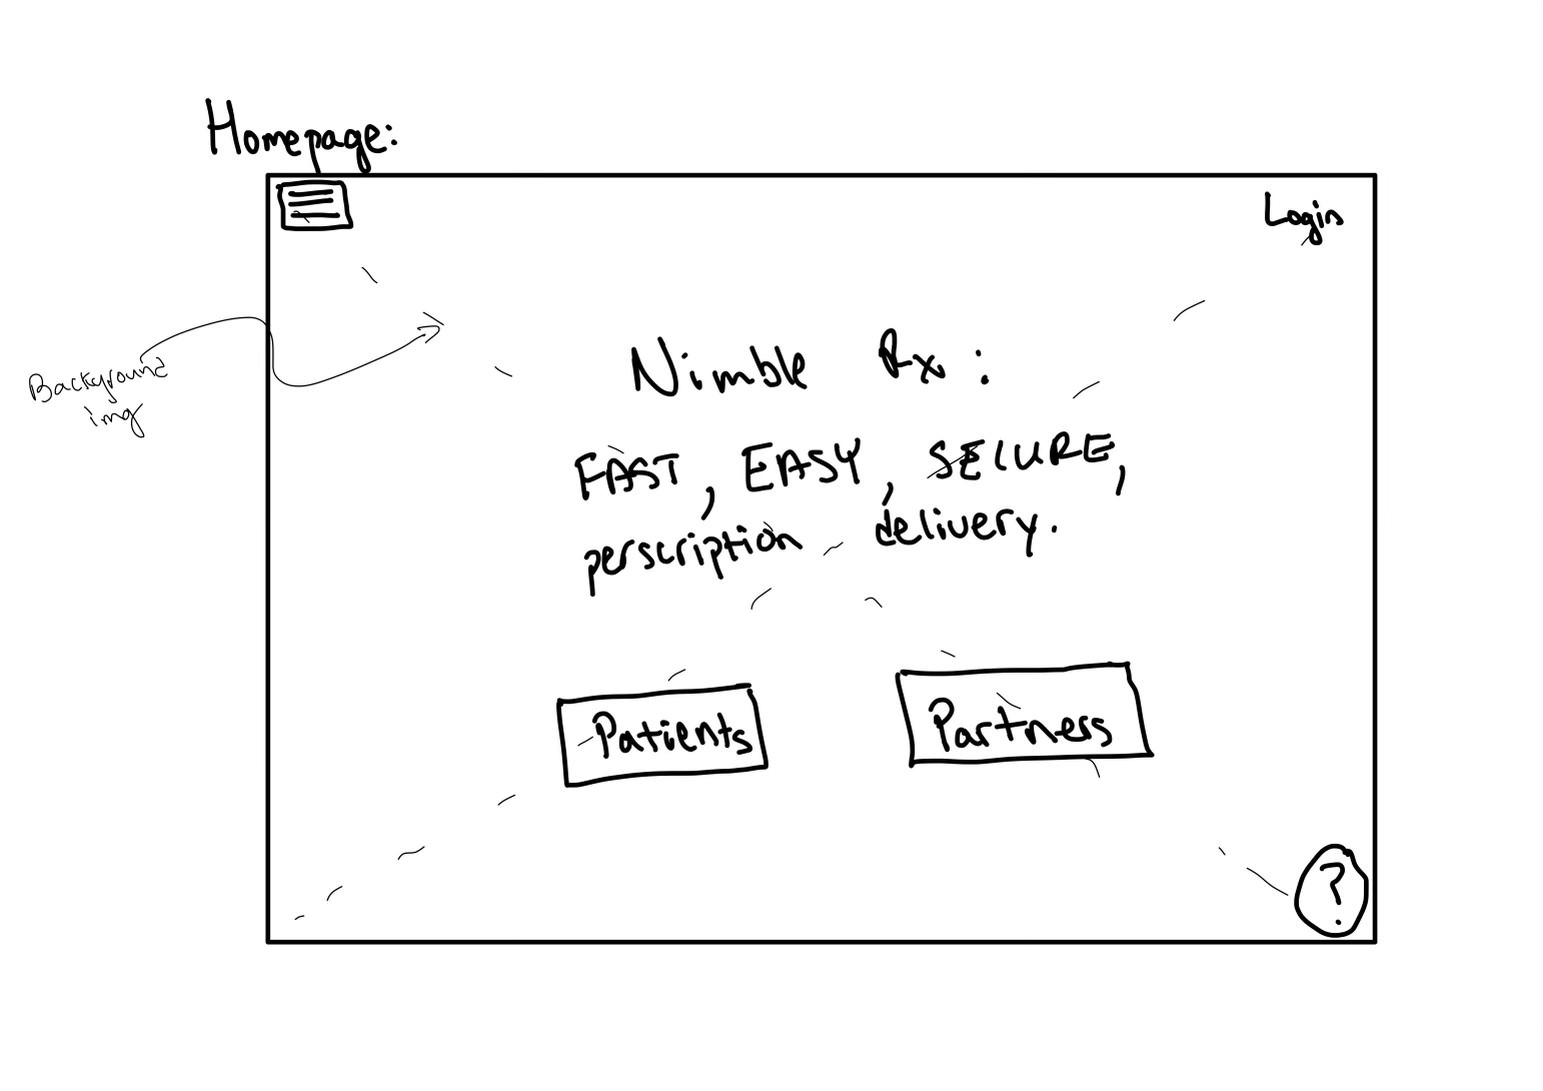 Homepage:
Login
Background
img
Nimble Rx:
FAST, EASY, SECURE,
perscription delivery.
Patients
Partners
?